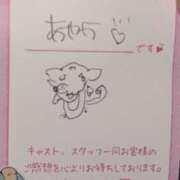 です
キャスト、スタッフ一同お客様の
ご感想を心よりお待ちしております。